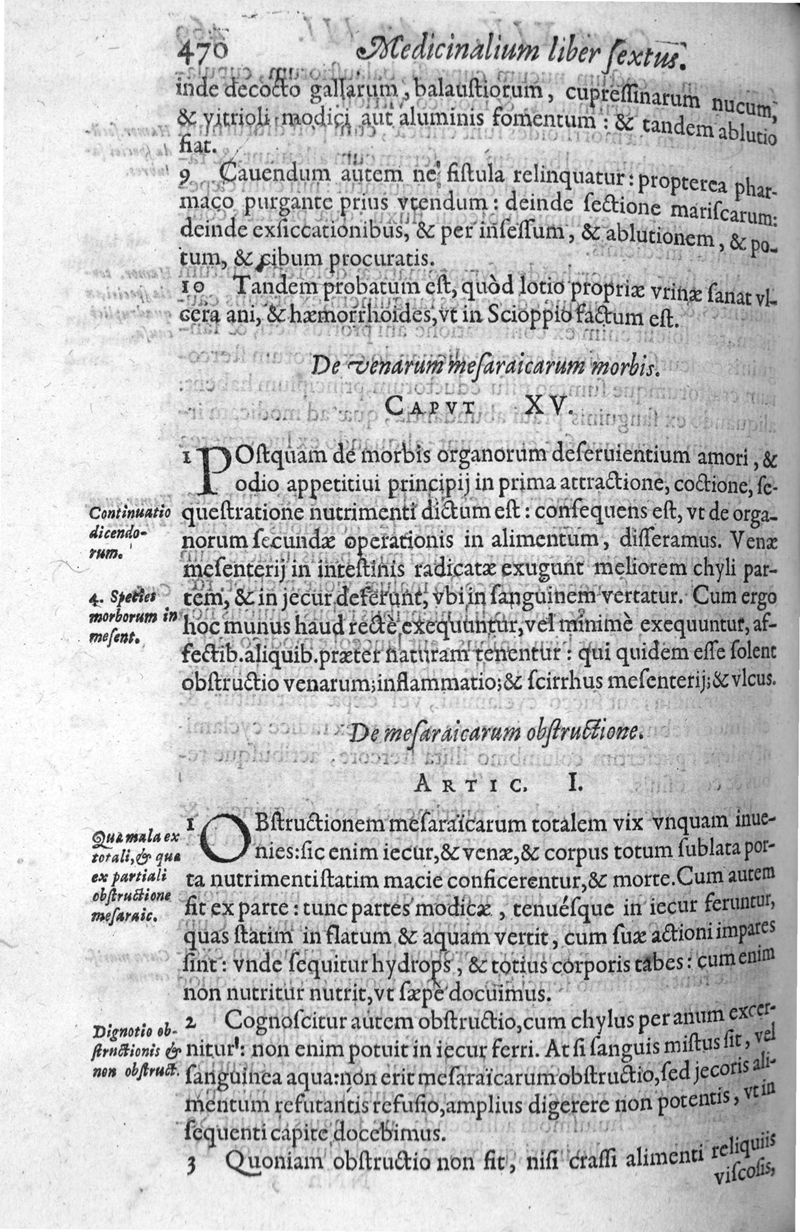 470 Medicinalium liber ſextus.
inde decocto gallarum, balauſtiorum, cupreſſinarum nucum,
& vitrioli modici aut aluminis fomentum: & tandem ablutio
fiat.
9 Cauendum autem ne fiſtula relinquatur: propterea phar-
maco purgante prius vtendum: deinde ſectione mariſcarum:
deinde exſiccationibus, & per inſeſſum, & ablutionem, & po-
tum, & cibum procuratis.
10 Tandem probatum eſt, quòd lotio propriæ vrinæ ſanat vl-
cera ani, & hæmorrhoides, vt in Scioppio factum eſt.
De venarum meſaraicarum morbis.
CAPVT XV.
1 POſtquam de morbis organorum deſeruientium amori, &
odio appetitiui principij in prima attractione, coctione, ſe-
Continuatio
dicendo-
rum.
queſtratione nutrimenti dictum eſt: conſequens eſt, vt de orga-
norum ſecundæ operationis in alimentum, differamus. Venæ
meſenterij in inteſtinis radicatæ exugunt meliorem chyli par-
4. Species
morborum in
meſent.
tem, & in jecur deferunt, vbi in ſanguinem vertatur. Cum ergo
hoc munus haud recte exequuntur, vel minimè exequuntur, af-
fectib. aliquib. præter naturam tenentur: qui quidem eſſe ſolent
obſtructio venarum; inflammatio; & ſcirrhus meſenterij; & vlcus.
De meſaraicarum obſtructione.
ARTIC. I.
1 OBſtructionem meſaraïcarum totalem vix vnquam inue-
Quæ mala ex
totali, & quæ
ex partiali
obſtructione
meſaraic.
nies: ſic enim iecur, & venæ, & corpus totum ſublata por-
ta nutrimenti ſtatim macie conficerentur, & morte. Cum autem
fit ex parte: tunc partes modicæ, tenuéſque in iecur feruntur,
quas ſtatim in flatum & aquam vertit, cum ſuæ actioni impares
ſint: vnde ſequitur hydrops, & totius corporis tabes: cum enim
non nutritur nutrit, vt ſæpè docuimus.
Dignotio ob-
ſtructionis &
non obſtruct.
2 Cognoſcitur autem obſtructio, cum chylus per anum excer-
nitur: non enim potuit in iecur ferri. At ſi ſanguis miſtus ſit, vel
ſanguinea aqua: non erit meſaraïcarum obſtructio, ſed jecoris ali-
mentum refutantis refuſio, amplius digerere non potentis, vt in
ſequenti capite docebimus.
3 Quoniam obſtructio non fit, niſi craſſi alimenti reliquiis
viſcoſis,